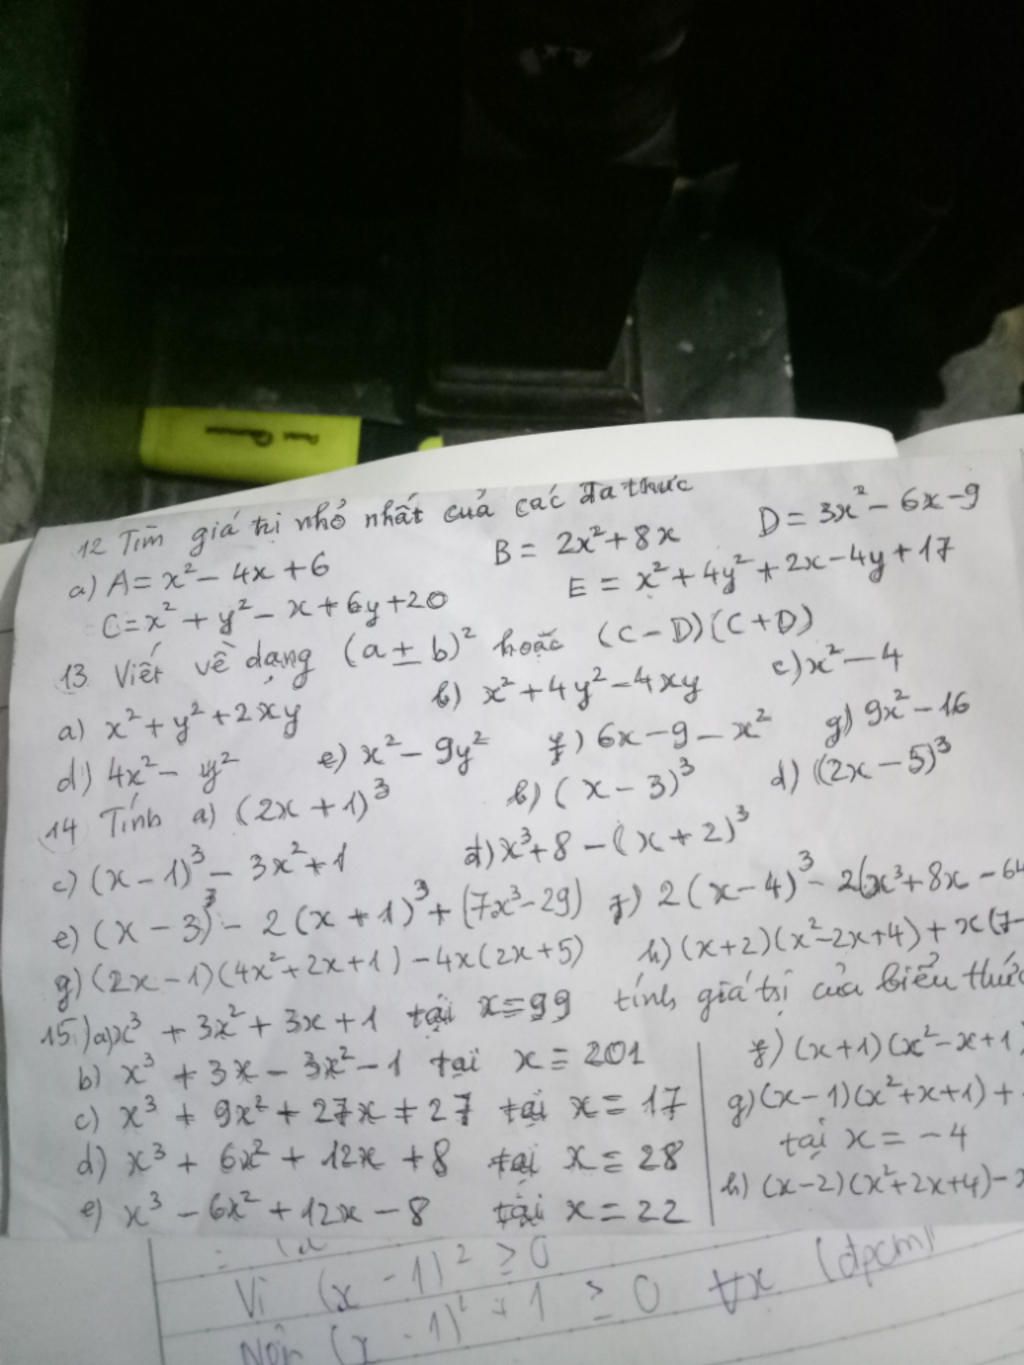 12 Tìm giá trị nhỏ nhất của các đa thức
a) A = x² - 4x + 6 B = 2x² + 8x D = 3x² - 6x - 9
C = x² + y² - x + 6y + 20 E = x² + 4y² + 2x - 4y + 17
13 Viết về dạng (a ± b)² hoặc (C - D)(C + D)
a) x² + y² + 2xy b) x² + 4y² - 4xy c) x² - 4
d) 4x² - y² e) x² - 9y² f) 6x - 9 - x² g) 9x² - 16
14 Tính a) (2x + 1)³ b) (x - 3)³ d) (2x - 5)³
c) (x - 1)³ - 3x² + 1 đ) x³ + 8 - (x + 2)³
e) (x - 3)³ - 2(x + 1)³ + (7x³ - 29) f) 2(x - 4)³ - 2(x³ + 8x - 64
g) (2x - 1)(4x² + 2x + 1) - 4x(2x + 5) h) (x + 2)(x² - 2x + 4) + x(7 -
15.) a) x³ + 3x² + 3x + 1 tại x = 99 tính giá trị của biểu thức
b) x³ + 3x - 3x² - 1 tại x = 201
c) x³ + 9x² + 27x + 27 tại x = 17
d) x³ + 6x² + 12x + 8 tại x = 28
e) x³ - 6x² + 12x - 8 tại x = 22
f) (x + 1)(x² - x + 1)
g) (x - 1)(x² + x + 1) +
tại x = -4
h) (x - 2)(x² + 2x + 4) -
Vì (x - 1)² ≥ 0
Nên (x - 1)² + 1 ≥ 0 ∀x (đpcm)